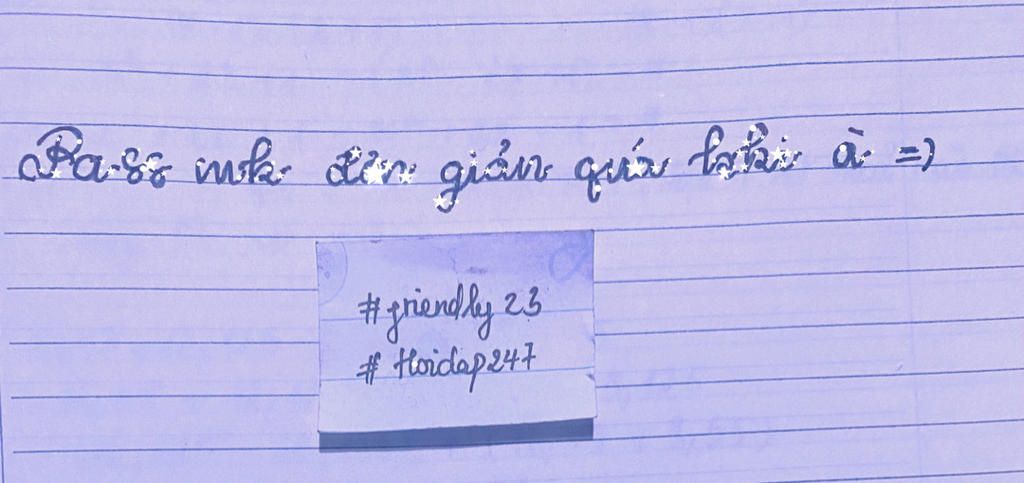 Pass mk đơn giản quá hkhi à =)
#friendly 23
# Hoidap247